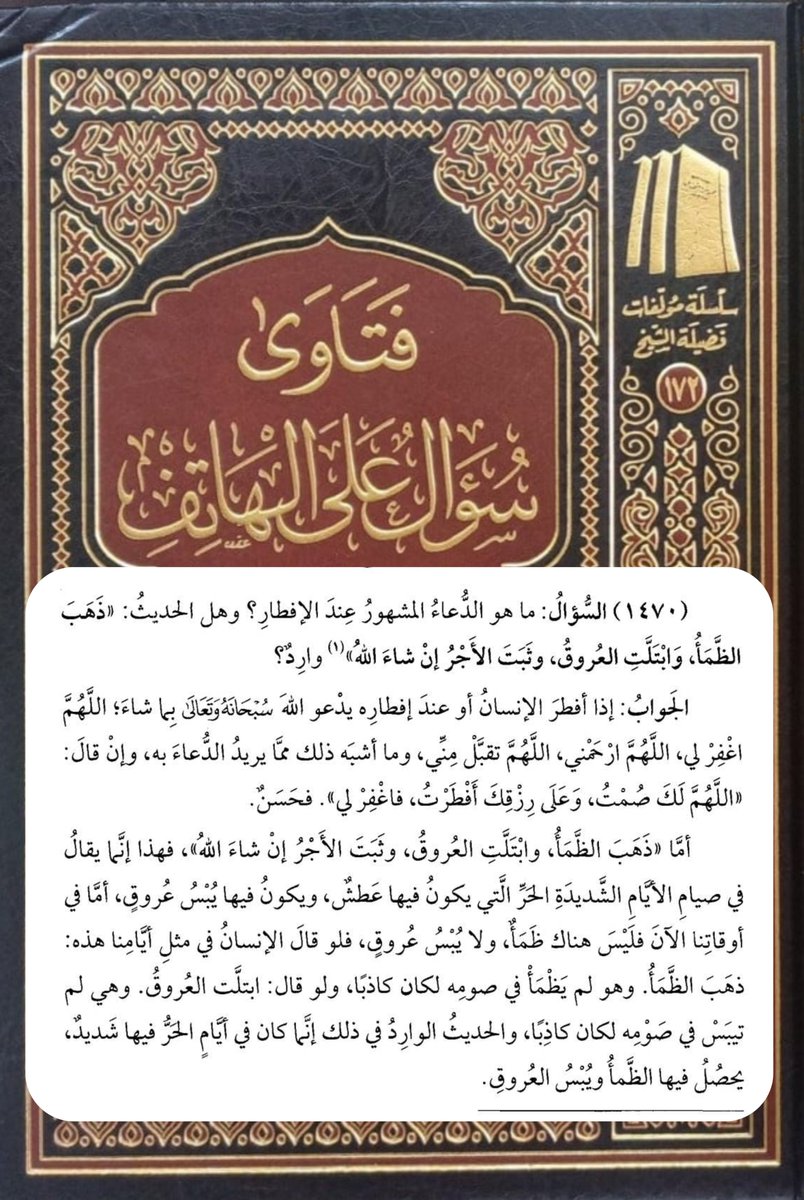 سلسلة مؤلفات
فضيلة الشيخ
١٧٢
فَتَاوَى
سُؤَالٌ عَلَى الهَاتِفِ
(١٤٧٠) السُّؤالُ: ما هو الدُّعاءُ المشهورُ عِندَ الإفطارِ؟ وهل الحديثُ: «ذَهَبَ
الظَّمَأُ، وَابْتَلَّتِ العُروقُ، وثَبَتَ الأَجْرُ إنْ شاءَ اللهُ»(١) وارِدٌ؟
الجَوابُ: إذا أفطرَ الإنسانُ أو عندَ إفطارِه يدْعو اللهَ سُبْحَانَهُ وَتَعَالَى بِما شاءَ؛ اللَّهُمَّ
اغْفِرْ لي، اللَّهُمَّ ارْحَمْني، اللَّهُمَّ تقبَّلْ مِنِّي، وما أشبَه ذلك ممَّا يريدُ الدُّعاءَ به، وإنْ قالَ:
«اللَّهُمَّ لَكَ صُمْتُ، وَعَلَى رِزْقِكَ أَفْطَرْتُ، فاغْفِرْ لي». فحَسَنٌ.
أمَّا «ذَهَبَ الظَّمَأُ، وابْتَلَّتِ العُروقُ، وثَبَتَ الأَجْرُ إنْ شاءَ اللهُ»، فهذا إنَّما يقالُ
في صيامِ الأيَّامِ الشَّديدَةِ الحَرِّ الَّتي يكونُ فيها عَطشٌ، ويكونُ فيها يُبْسُ عُروقٍ، أمَّا في
أوقاتِنا الآنَ فلَيْسَ هناك ظَمَأٌ، ولا يُبْسُ عُروقٍ، فلو قالَ الإنسانُ في مثلِ أيَّامِنا هذه:
ذهَبَ الظَّمَأُ. وهو لم يَظْمَأْ في صومِه لكان كاذبًا، ولو قال: ابتلَّت العُروقُ. وهي لم
تيبَسْ في صَوْمِه لكان كاذِبًا، والحديثُ الوارِدُ في ذلك إنَّما كان في أيَّامٍ الحَرُّ فيها شَديدٌ،
يحصُلُ فيها الظَّمأُ ويُبْسُ العروقِ.